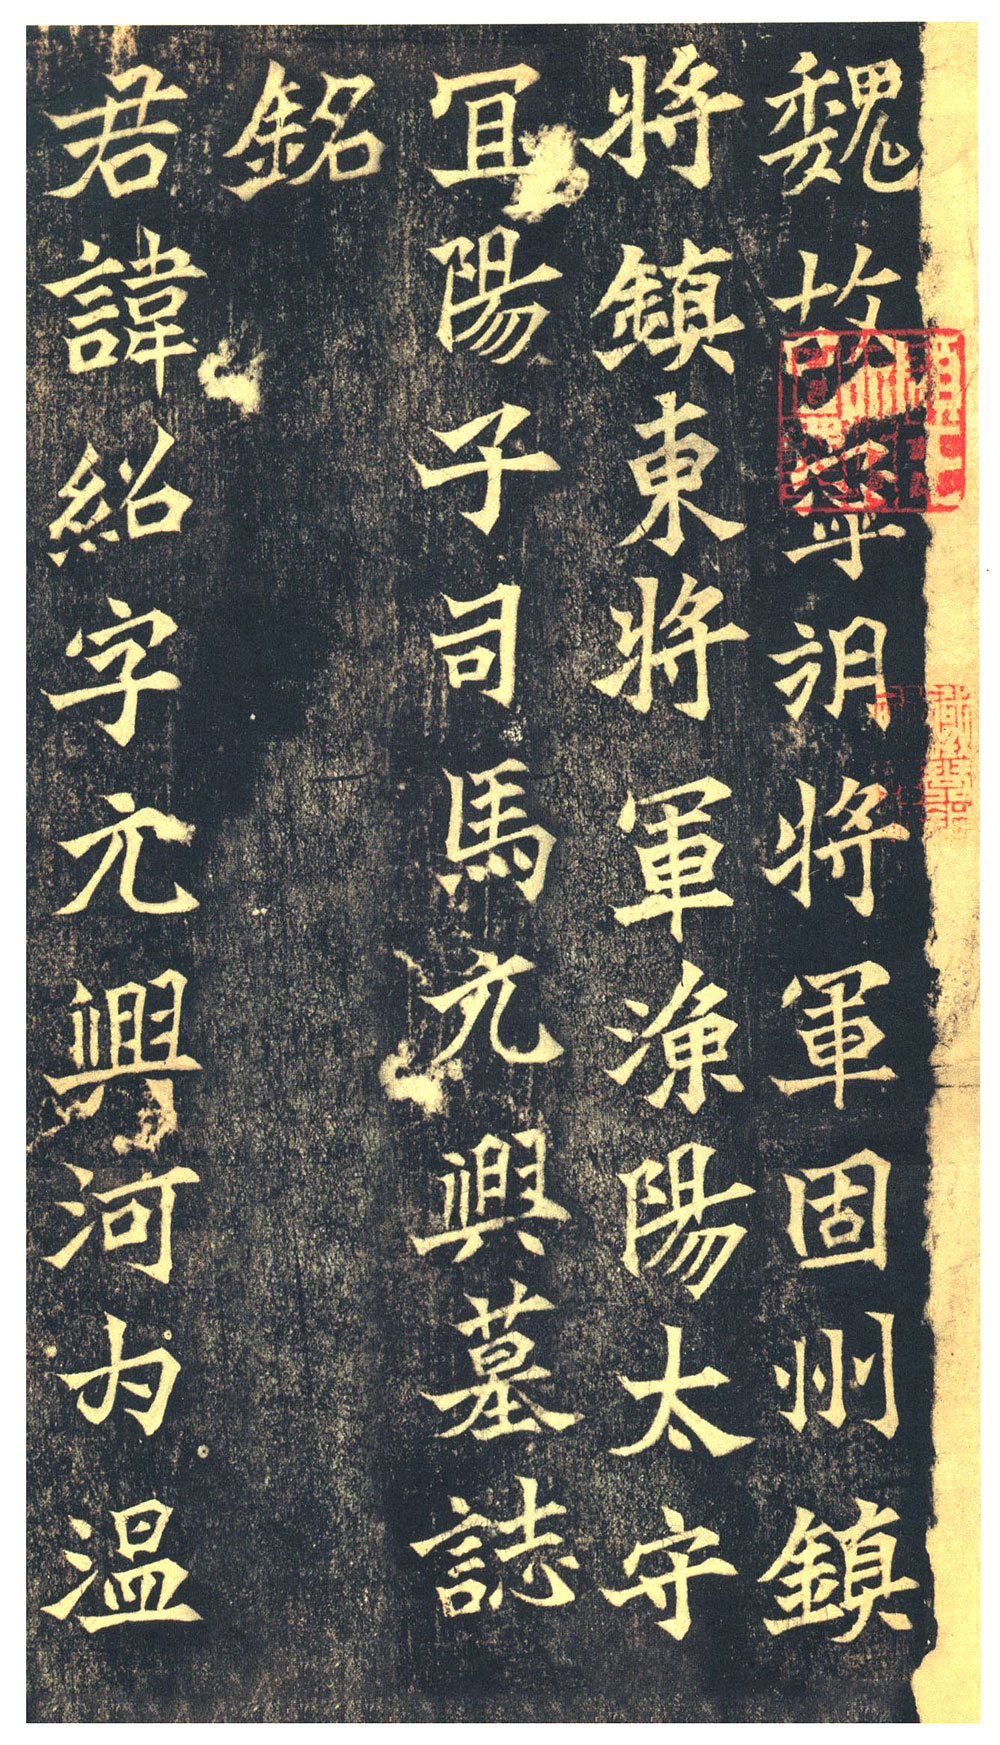 魏故寧朔將軍固州鎮
將鎮東將軍漁陽太守
宜陽子司馬元興墓誌
銘
君諱紹字元興河内溫